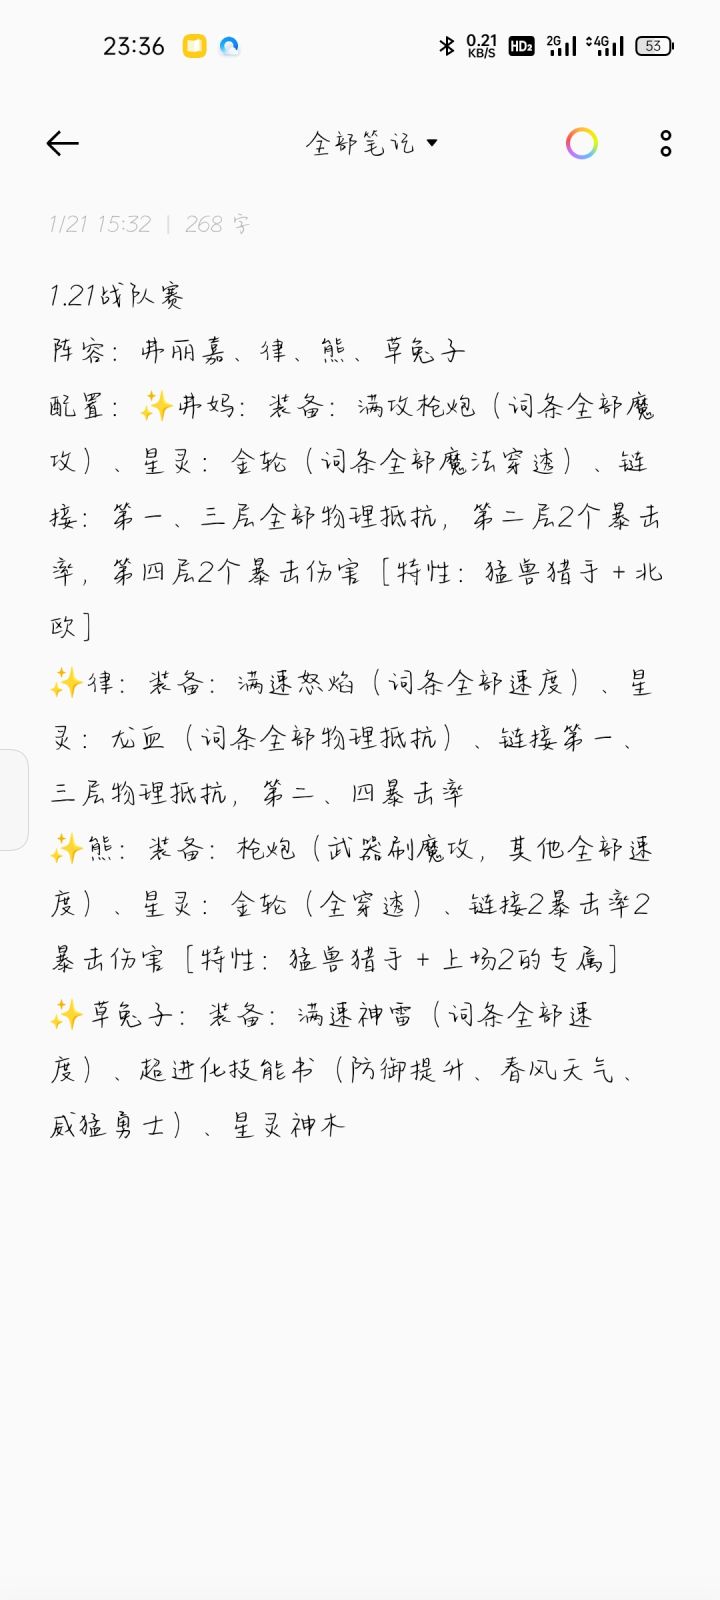 23:36 0.21 KB/S HD₂ 2G 4G 53
全部笔记
1/21 15:32 | 268 字
1.21战队赛
阵容：弗丽嘉、律、熊、草兔子
配置：✨弗妈：装备：满攻枪炮（词条全部魔
攻）、星灵：金轮（词条全部魔法穿透）、链
接：第一、三层全部物理抵抗，第二层2个暴击
率，第四层2个暴击伤害［特性：猛兽猎手+北
欧］
✨律：装备：满速怒焰（词条全部速度）、星
灵：龙血（词条全部物理抵抗）、链接第一、
三层物理抵抗，第二、四暴击率
✨熊：装备：枪炮（武器刷魔攻，其他全部速
度）、星灵：金轮（全穿透）、链接2暴击率2
暴击伤害［特性：猛兽猎手+上场2的专属］
✨草兔子：装备：满速神雷（词条全部速
度）、超进化技能书（防御提升、春风天气、
威猛勇士）、星灵神木